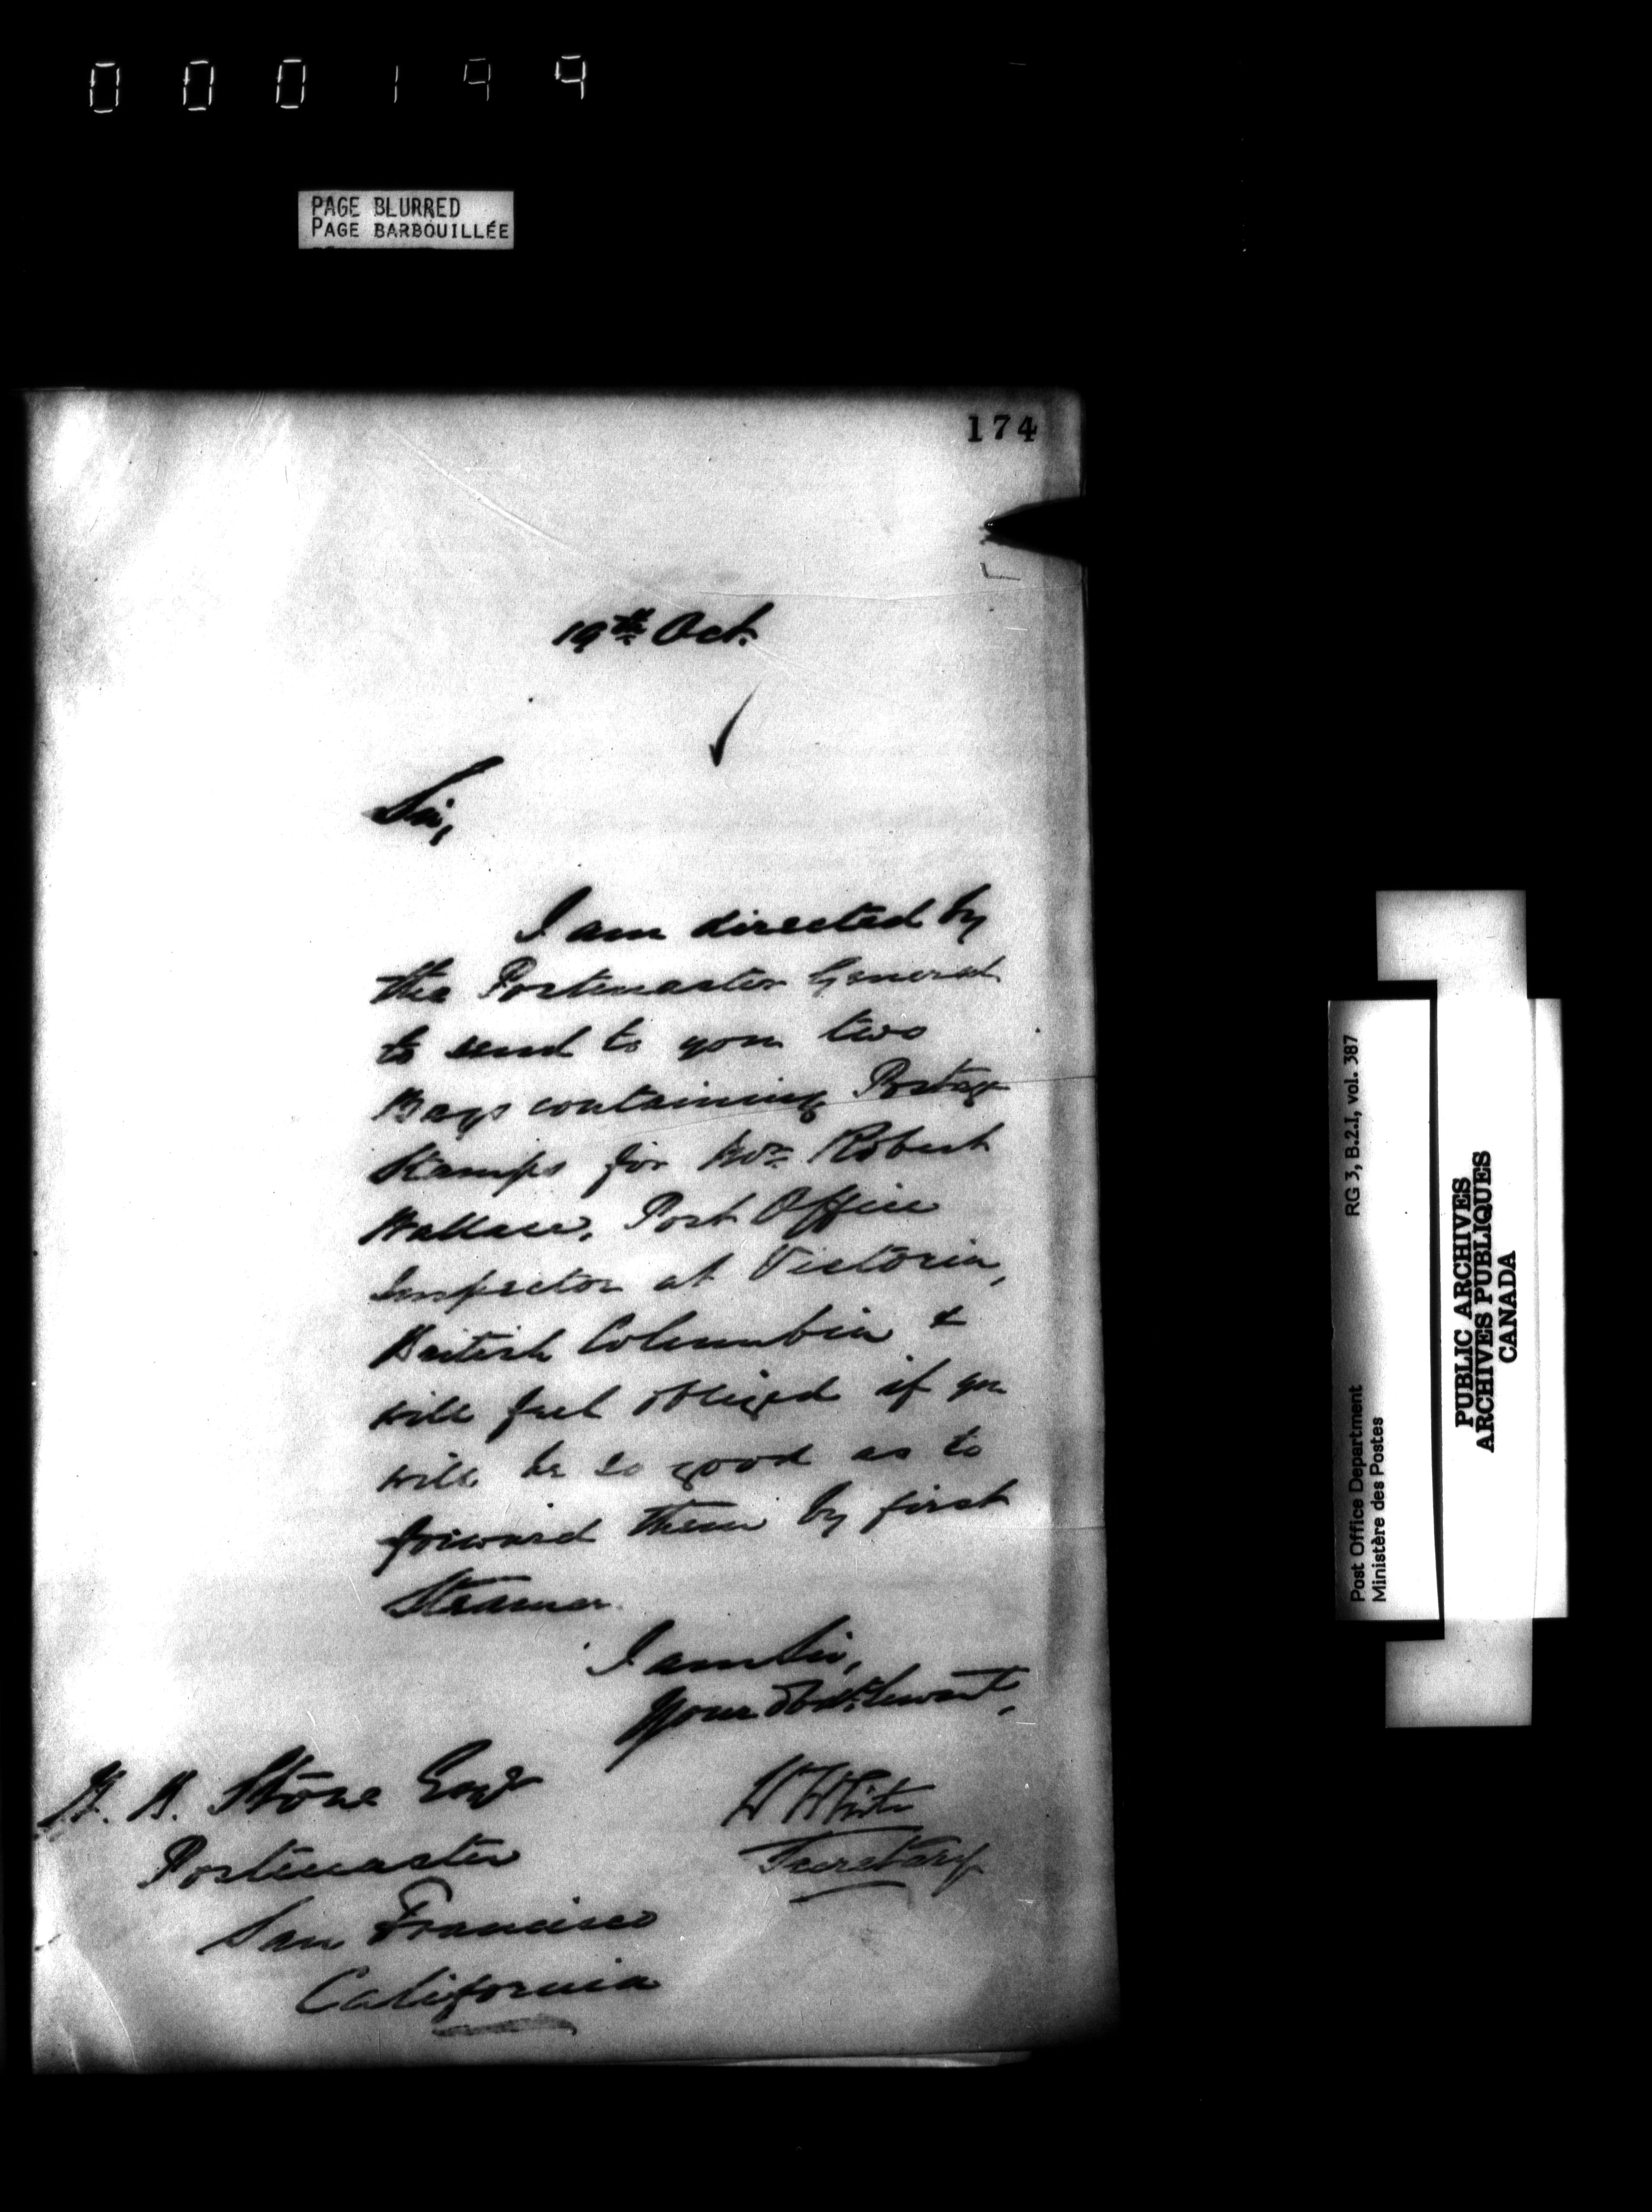 000199
PAGE BLURRED
PAGE BARBOUILLÉE
174
19th Oct.
Sir,
I am directed by
the Postmaster General
to send to you two
Bags containing Postage
Stamps for Mr. Robert
Wallace, Post Office
Inspector at Victoria,
British Columbia &
will feel obliged if you
will be so good as to
forward them by first
Steamer.
I am Sir,
Your Obdt. Servant,
W White
Secretary
N. B. Stone Esqr
Postmaster
San Francisco
California
Post Office Department RG 3, B.2.1, vol. 387
Ministère des Postes
PUBLIC ARCHIVES
ARCHIVES PUBLIQUES
CANADA